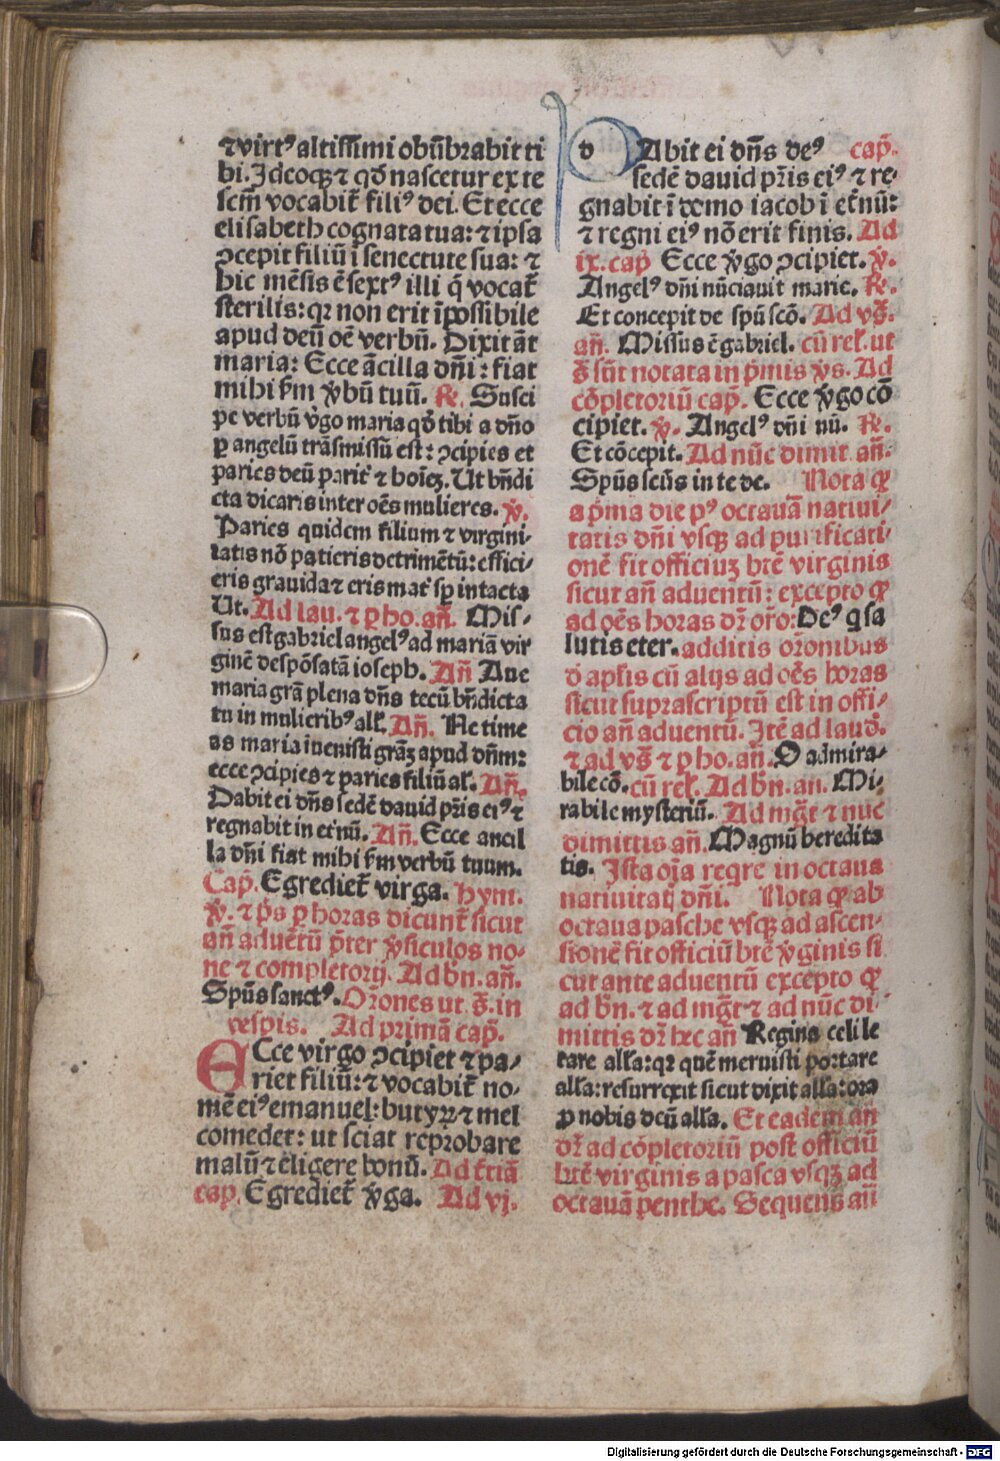 ⁊virtꝰ altissimi obūbrabit ti
bi. Idcoqꝫ ⁊ qđ nascetur ex te
scm̄ vocabit̄ filiꝰ dei. Et ecce
elisabeth cognata tua: ⁊ ipsa
ꝯcepit filiū ī senectute sua: ⁊
hic mēsis ē sextꝰ illi q̄ vocat̄
sterilis: qꝛ non erit īpossibile
apud deū oē verbū. Dixit āt
maria: Ecce ācilla dn̄i: fiat
mihi ẜm v̄bū tuū. ℟. Susci
pe verbū v̄go maria qđ tibi a dn̄o
ꝑ angelū trāsmissū est: ꝯcipies et
paries deū parit̄ ⁊ hoīeꝫ. Ut bn̄di
cta dicaris inter oēs mulieres. ℣.
Paries quidem filium ⁊ virgini-
tatis nō patieris detrimētū: effici-
eris grauida ⁊ eris mat̄ sꝑ intacta
Ut. Ad lau. ⁊ ꝑ ho. an̄. Mis-
sus est gabriel angelꝰ ad mariā vir
ginē despōsatā ioseph. An̄ Aue
maria grā plena dn̄s tecū bn̄dicta
tu in mulieribꝰ all̄. An̄. Ne time
as maria inuenisti grāꝫ apud dn̄m:
ecce ꝯcipies ⁊ paries filiū al̄. An̄.
Dabit ei dn̄s sedē dauid pr̄is eiꝰ ⁊
regnabit in et̄nū. An̄. Ecce ancil
la dn̄i fiat mihi ẜm verbū tuum.
Cap̄. Egrediet̄ virga. Hym.
℣. ⁊ p̄s ꝑ horas dicunt̄ sicut
an̄ aduētū p̄ter v̄siculos no-
ne ⁊ completorij. Ad bn̄. an̄.
Spūs sanctꝰ. Or̄ones ut s̄. in
vespis. Ad primā cap̄.
Ecce virgo ꝯcipiet ⁊ pa-
riet filiū: ⁊ vocabit̄ no-
mē eiꝰ emanuel: butyꝝ ⁊ mel
comedet: ut sciat reprobare
malū ⁊ eligere bonū. Ad t̄tiā
cap. Egrediet̄ v̄ga. Ad vj.
d Abit ei dn̄s deꝰ cap̄.
sedē dauid pr̄is eiꝰ ⁊ re-
gnabit ī domo iacob ī et̄nū:
⁊ regni eiꝰ nō erit finis. Ad
ix. cap̄ Ecce v̄go ꝯcipiet. ℣.
Angelꝰ dn̄i nūciauit marie. ℟.
Et concepit de spū scō. Ad vs̄.
an̄. Missus ē gabriel. cū rel̄. ut
s̄ sūt notata in p̄mis v̄s. Ad
cōpletoriū cap̄. Ecce v̄go cō
cipiet. ℣. Angelꝰ dn̄i nū. ℟.
Et cōcepit. Ad nūc dimit. an̄.
Spūs scūs in te de. Nota ꝙ
a p̄ma die pꝰ octauā natiui-
tatis dn̄i vsqꝫ ad purificati-
onē fit officiuꝫ btē virginis
sicut an̄ aduentū: excepto ꝙ
ad oēs horas dr̄ or̄o: Deꝰ q̄ sa
lutis eter. additis or̄onibus
d̄ apl̄is cū alijs ad oēs horas
sicut suprascriptū est in offi-
cio an̄ aduentū. Itē ad laud̄.
⁊ ad vs̄ ⁊ ꝑ ho. an̄. O admira-
bile cō. cū rel̄. Ad bn̄. an. Mi-
rabile mysteriū. Ad mḡt ⁊ nūc
dimittis an̄. Magnū heredita
tis. Ista oīa reqr̄e in octaua
natiuitatꝭ dn̄i. Nota ꝙ ab
octaua pasche vsqꝫ ad ascen-
sionē fit officiū btē v̄ginis si
cut ante aduentū excepto ꝙ
ad bn̄. ⁊ ad mḡt ⁊ ad nūc di-
mittis dr̄ hec an̄ Regina celi le
tare all̄a: qꝛ quē meruisti portare
all̄a: resurrexit sicut dixit all̄a: ora
ꝓ nobis deū all̄a. Et eadem an̄
dr̄ ad cōpletoriū post officiū
btē virginis a pasca vsqꝫ ad
octauā penthe. Sequens an̄
Digitalisierung gefördert durch die Deutsche Forschungsgemeinschaft - DFG